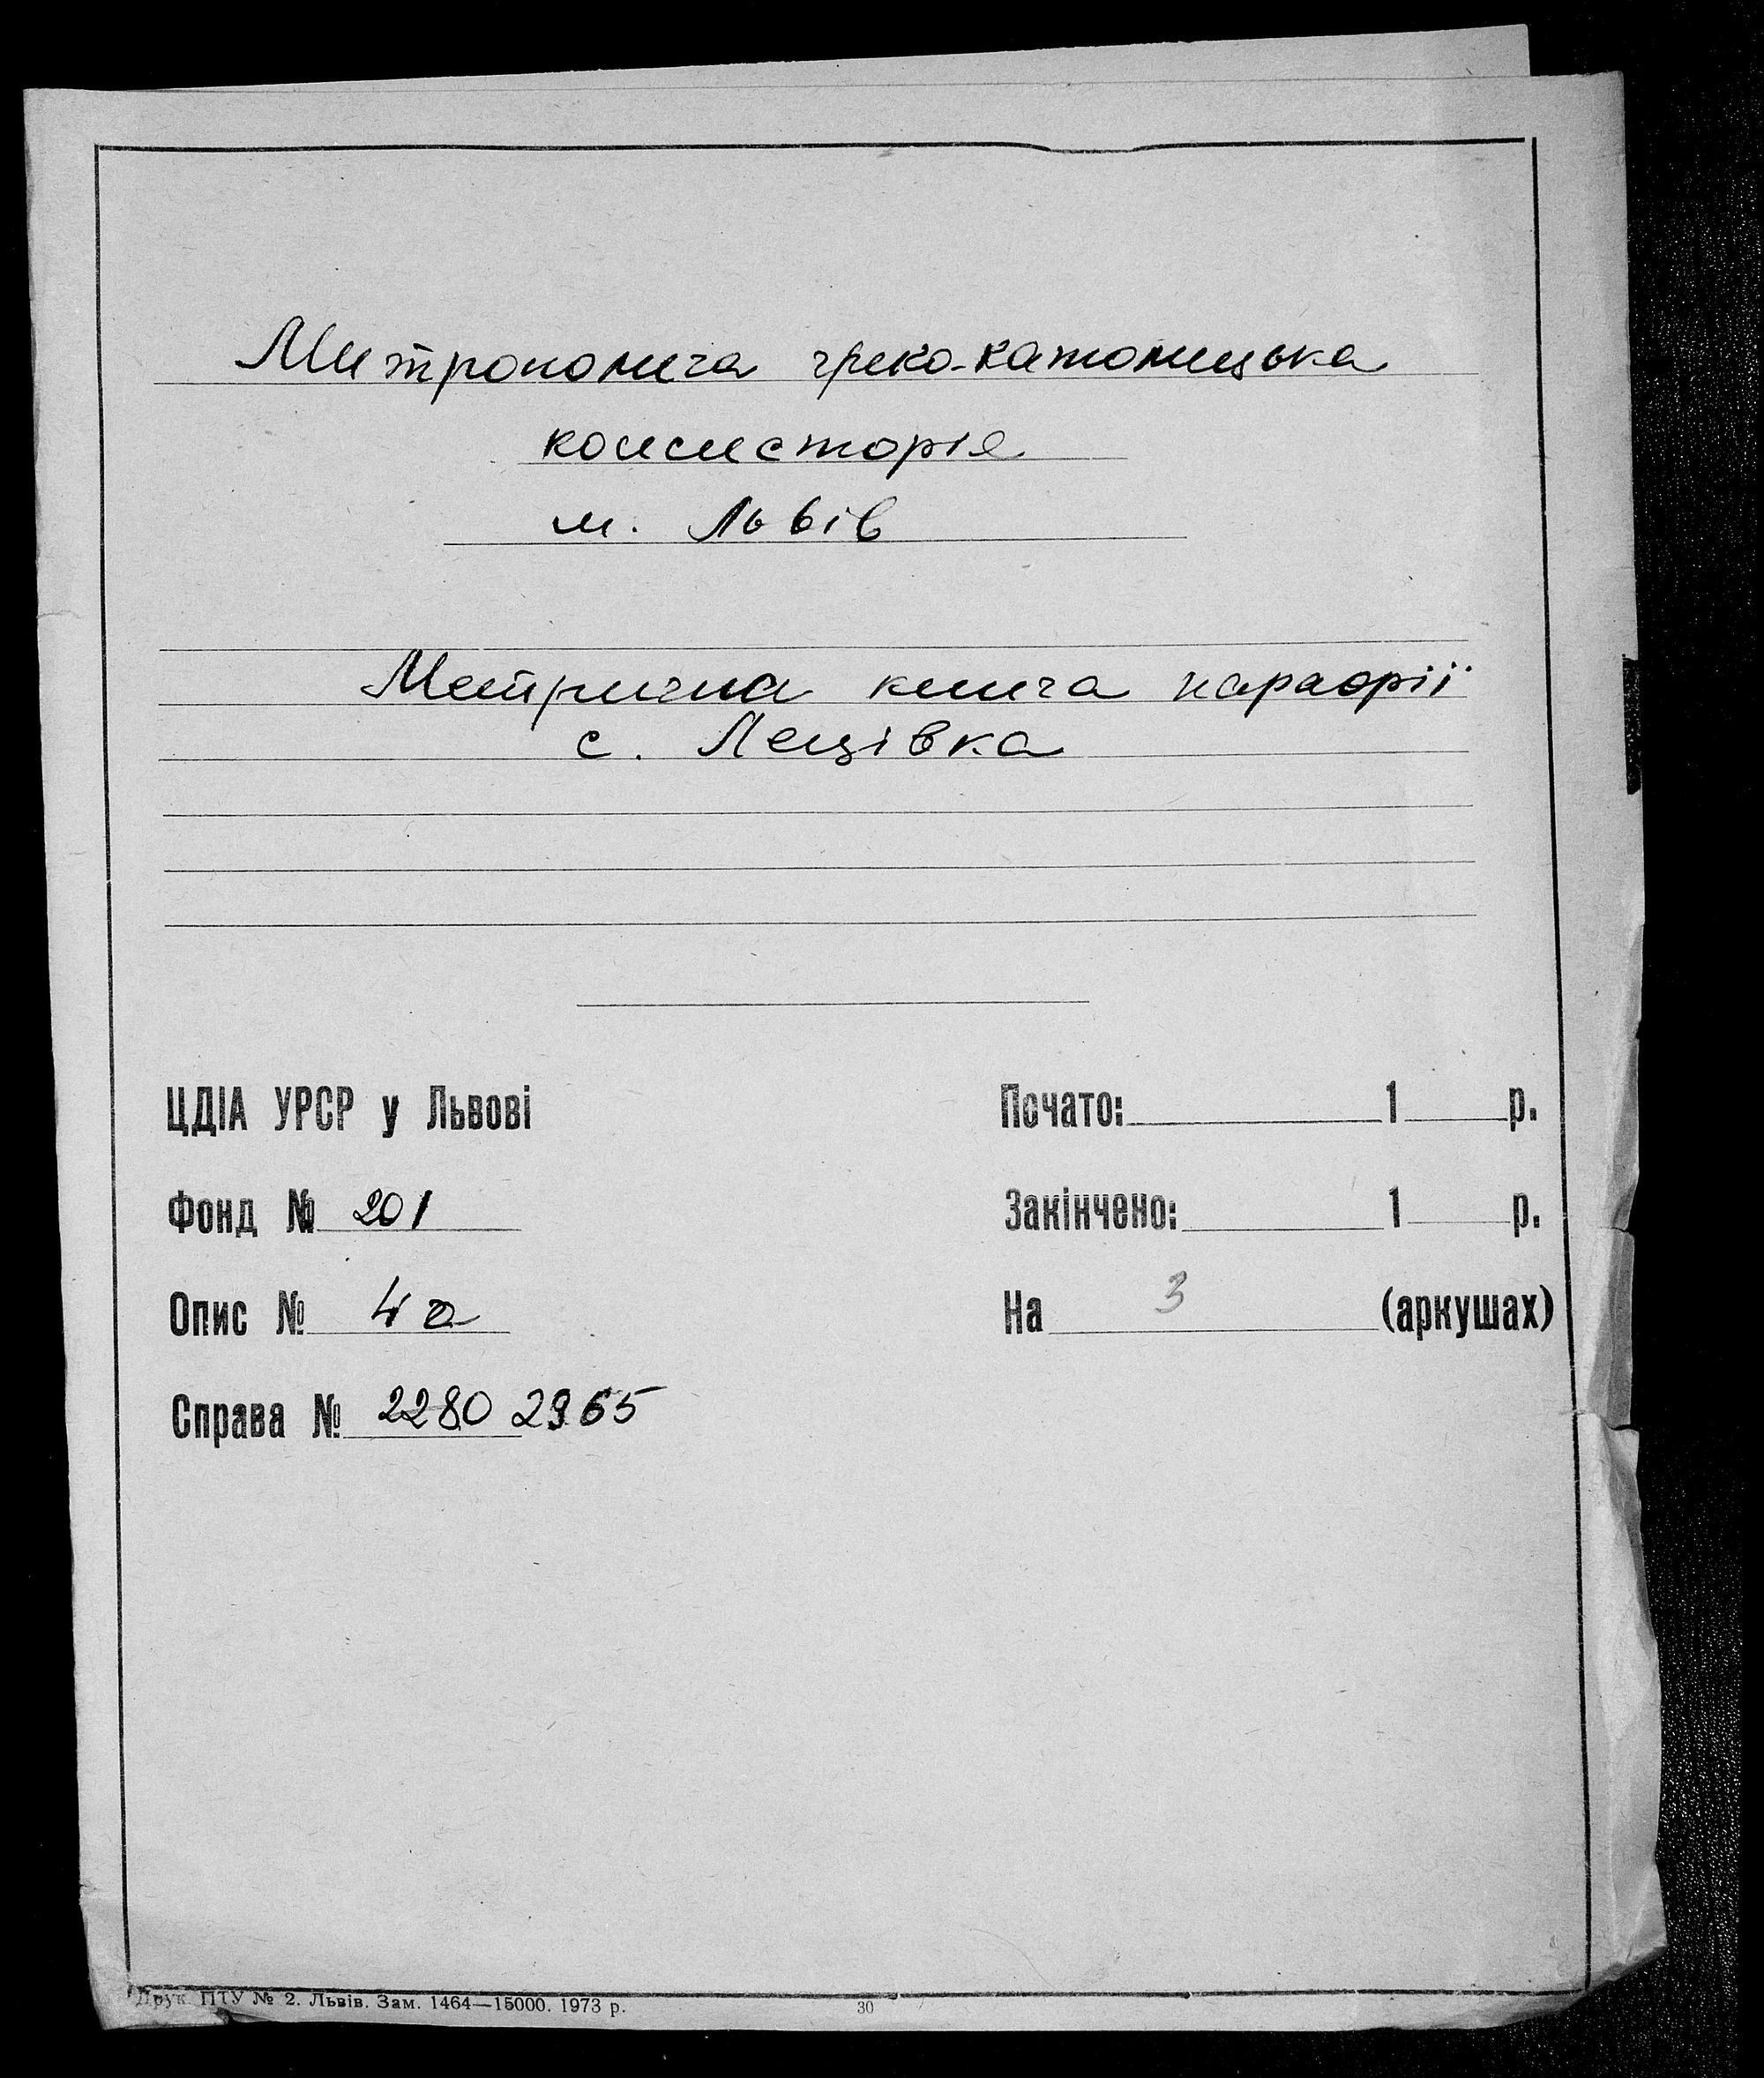 Митрополича греко-католицька
консисторія
м. Львів
Метрична книга парафії
с. Лещівка
ЦДІА УРСР у Львові
Почато: 1 р.
Фонд № 201
Закінчено: 1 р.
Опис № 4а
На 3 (аркушах)
Справа № 2280 2965
Друк. ПТУ № 2. Львів. Зам. 1464—15000. 1973 р. 30